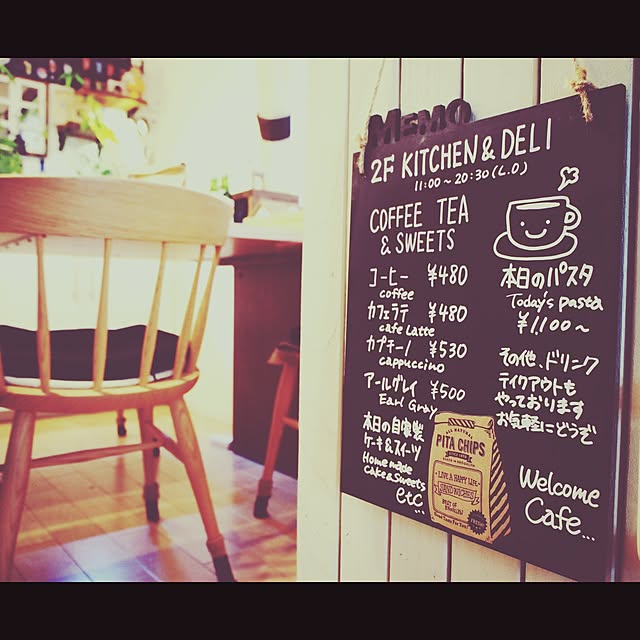 MEMO
2F KITCHEN & DELI
11:00～20:30(L.O)
COFFEE TEA
& SWEETS
コーヒー ¥480
coffee
カフェラテ ¥480
cafe Latte
カプチーノ ¥530
cappuccino
アールグレイ ¥500
Earl Gray
本日の自家製
ケーキ&スイーツ
Home made
Cake&Sweets
etc
...
本日のパスタ
Today's pasta
¥1100～
その他、ドリンク
テイクアウトも
やっております
お気軽にどうぞ
PITA CHIPS
LIVE A HAPPY LIFE
Welcome
Cafe...